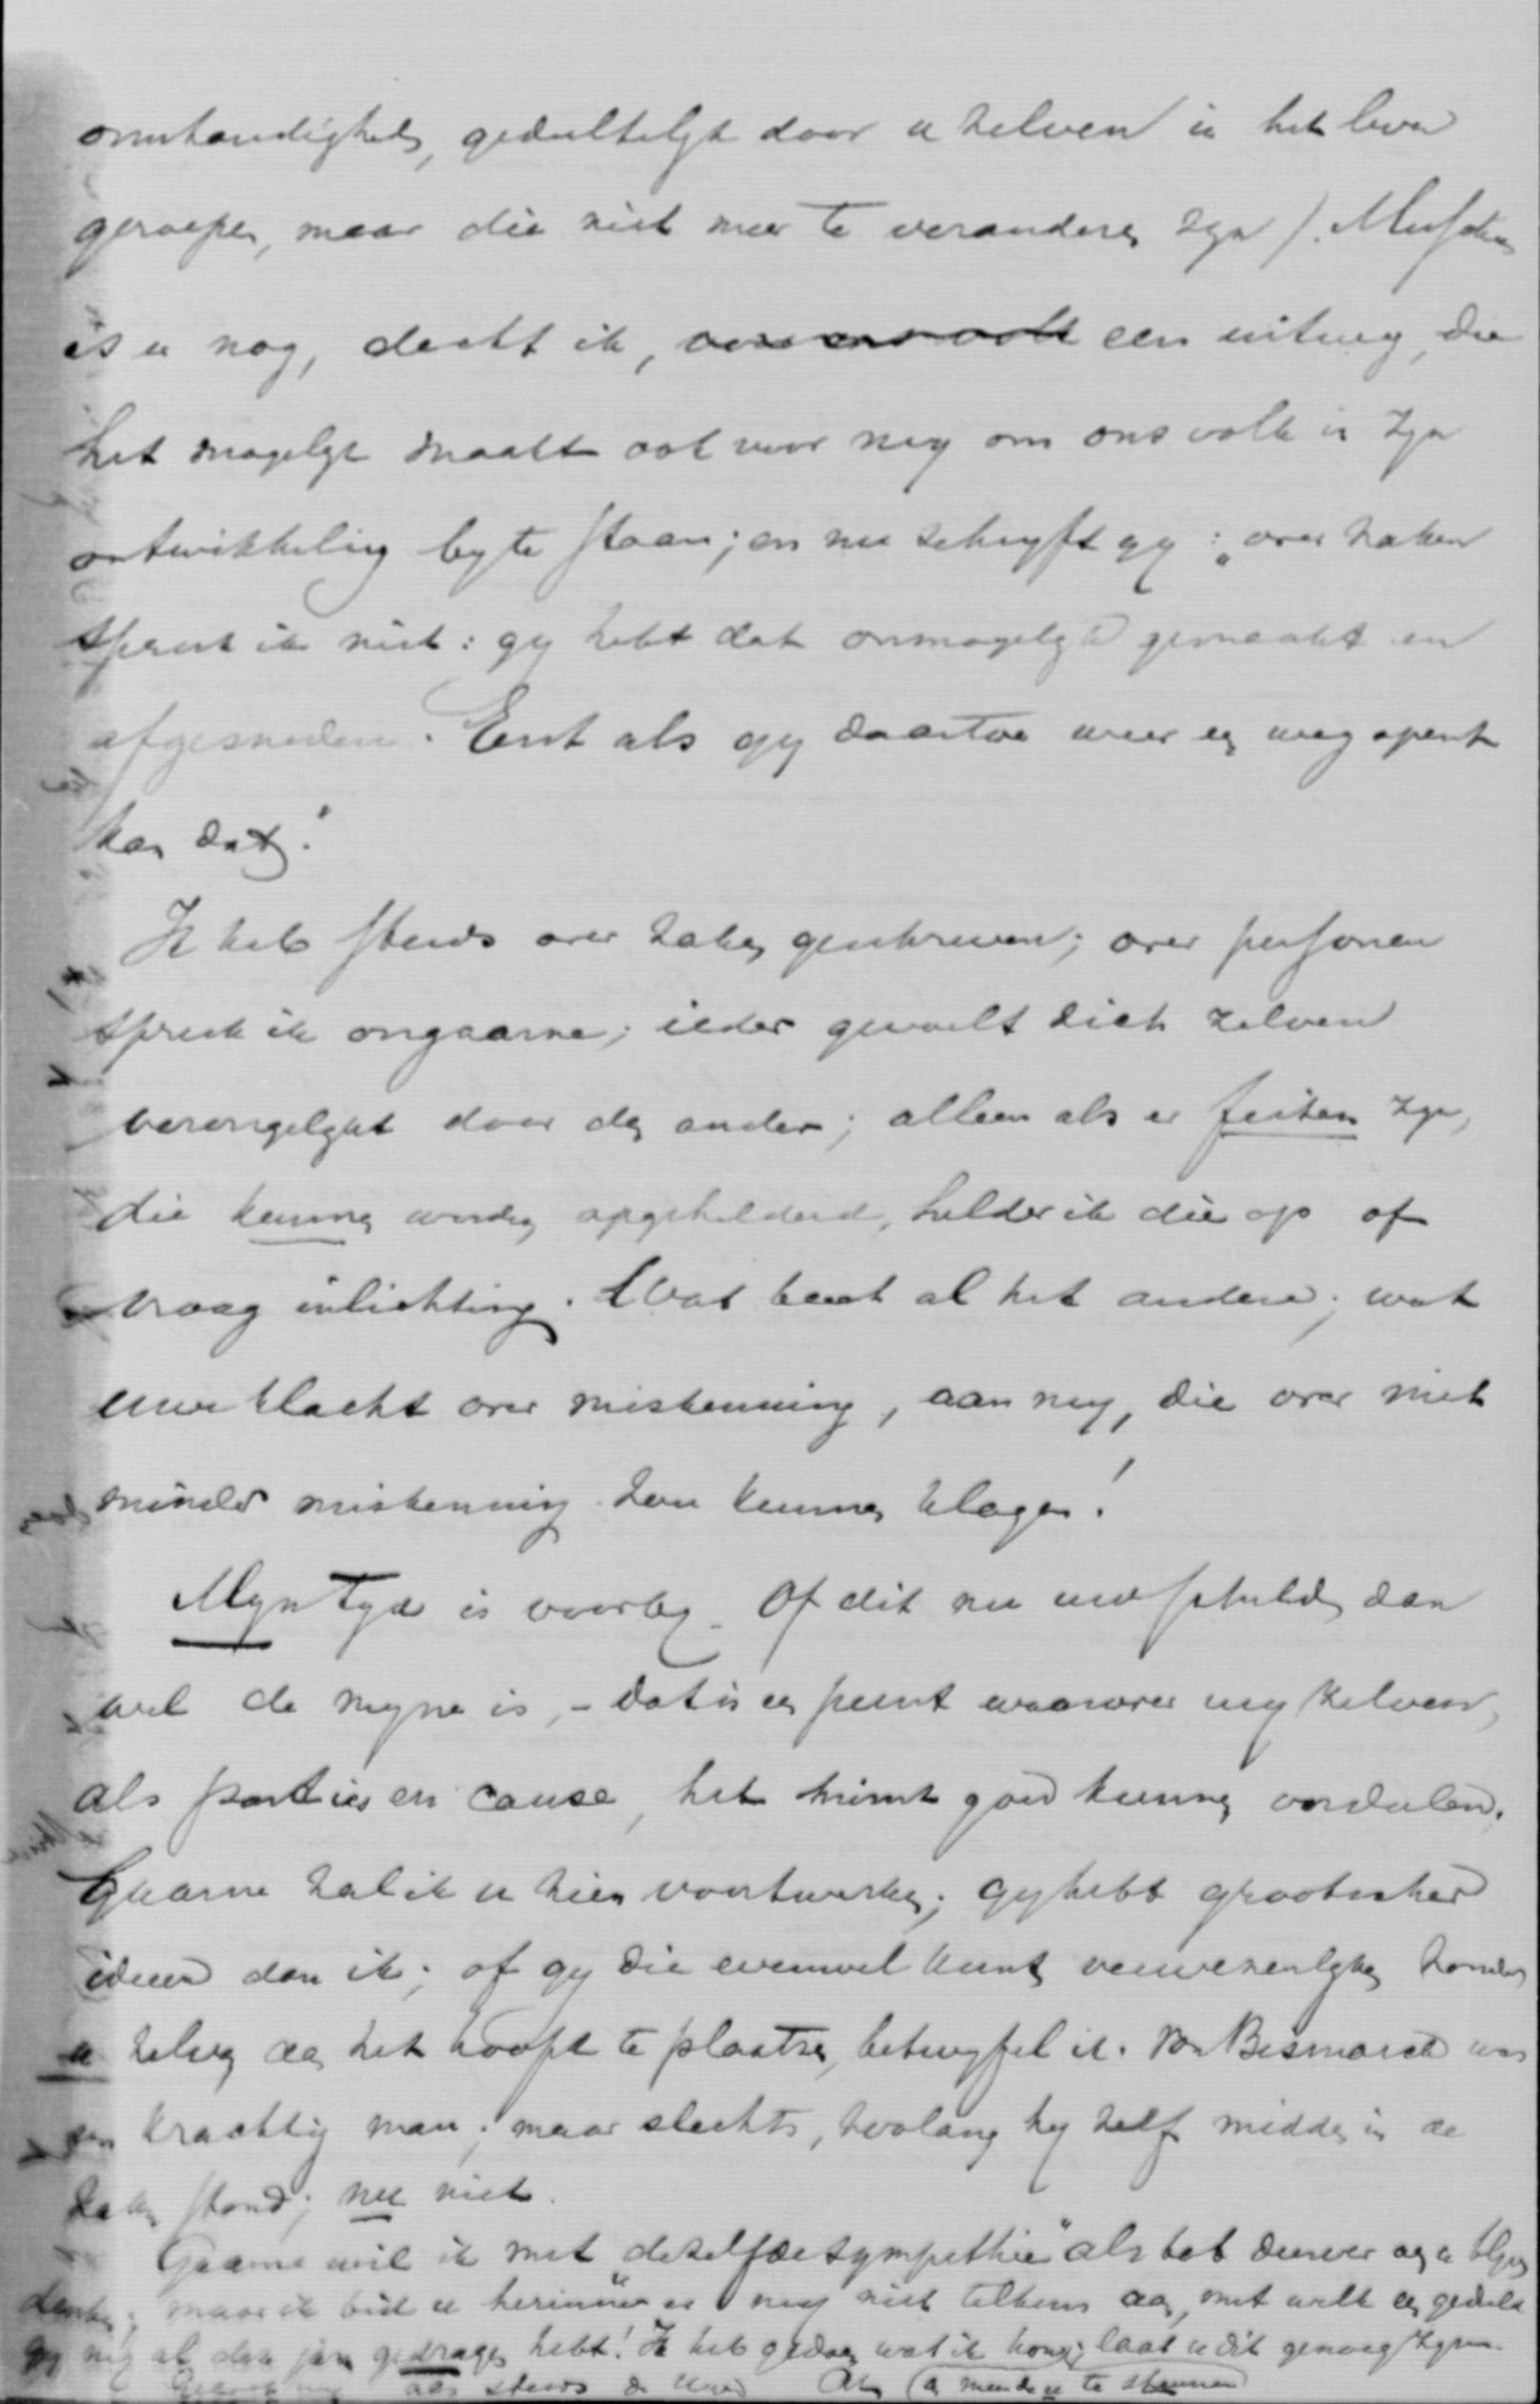 omstandigheden, gedeeltelijk door u zelven in het leven
geroepen, maar die niet meer te veranderen zijn). Misschien
is u nog, dacht ik, een uiting, die
het mogelijk maakt ook voor mij om ons volk in zijn
ontwikkeling bij te staan; en nu schrijft gij: „over zaken
spreek ik niet: gij hebt dat onmogelijk gemaakt en
afgesneden. Eerst als gij daartoe weer een weg opent
kan dat."
Ik heb steeds over zaken geschreven; over personen
spreek ik ongaarne; ieder gevoelt zich zelven
verongelijkt door den ander; alleen als er feiten zijn,
die kunnen worden opgehelderd, helder ik die op of
vraag inlichting. Wat baat al het andere; wat
uwe klacht over miskenning, aan mij, die over niet
minder miskenning zou kunnen klagen!
Mijn tijd is voorbij. Of dit nu uw schuld dan
wel de mijne is, – dat is een punt waarover wij zelven,
als parties en cause, het minst goed kunnen oordeelen.
Gaarne zal ik u zien voortwerken; gij hebt grootscher
ideeen dan ik; of gij die evenwel kunt verwezenlijken zonder
u zelven aan het hoofd te plaatsen, betwijfel ik. Von Bismarck was
een krachtig man; maar slechts, zoolang hij zelf midden in de
zaken stond; nu niet.
Gaarne wil ik met dezelfde „sympathie" als tot dusver aan u blijven
denken; maar ik bid u herinner er mij niet telkens aan, met welk een geduld
gij mij al deze jaren gedragen hebt! Ik heb gedaan wat ik kon; laat u dit genoeg zijn.
als steeds de Uwe